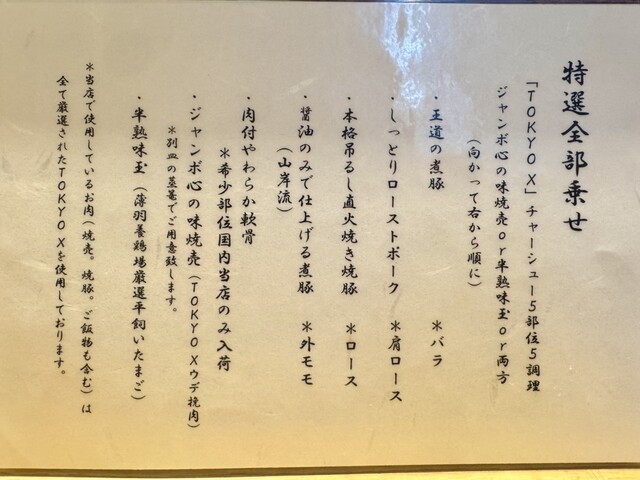 特選全部乗せ
「TOKYO X」チャーシュー5部位5調理
ジャンボ心の味焼売or半熟味玉or両方
(向かって右から順に)
・王道の煮豚 ＊バラ
・しっとりローストポーク ＊肩ロース
・本格吊るし直火焼き焼豚 ＊ロース
・醤油のみで仕上げる煮豚 ＊外モモ
(山岸流)
・肉付やわらか軟骨
＊希少部位国内当店のみ入荷
・ジャンボ心の味焼売(TOKYO Xウデ挽肉)
＊別皿の蒸篭でご用意致します。
・半熟味玉(薄羽養鶏場厳選平飼いたまご)
＊当店で使用しているお肉(焼売。焼豚。ご飯物も含む)は
全て厳選されたTOKYO Xを使用しております。